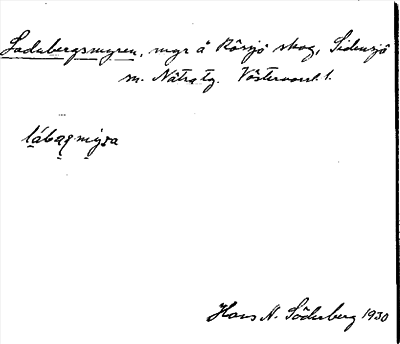 Ladubergsmyren, myr å Rösjö skog, Sidensjö
sn. Nätra tg. Västernorrl. l.
Hans N. Söderberg 1930